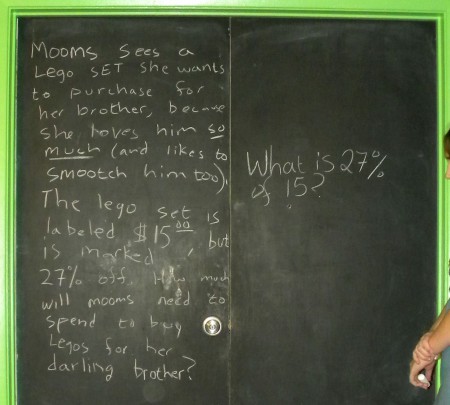 Mooms sees a
Lego SET she wants
to purchase for
her brother, because
she loves him so
much (and likes to
smootch him too).
The lego set is
labeled $15.00, but
is marked
27% off. How much
will mooms need to
spend to buy
Legos for her
darling brother?
What is 27%
of 15?